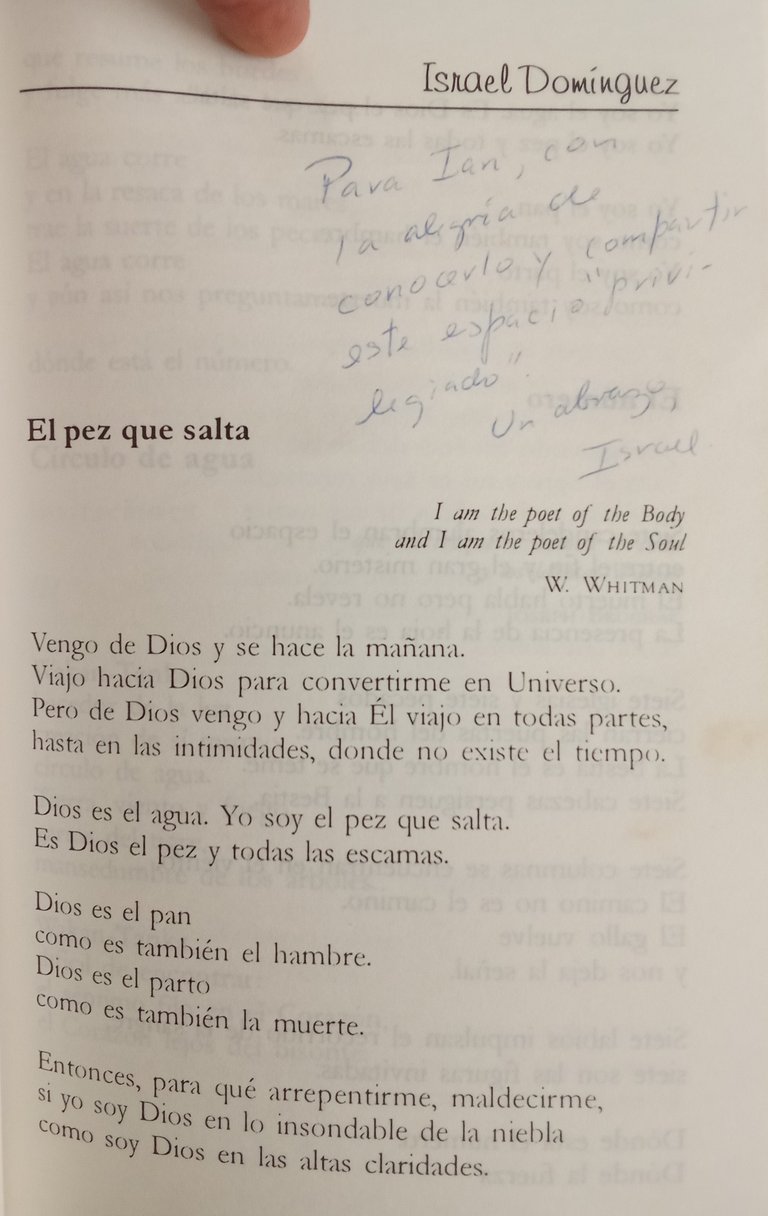 Israel Domínguez
Para Ian, con
la alegría de
conocerlo y compartir
este espacio "privi-
legiado".
Un abrazo,
Israel
El pez que salta
I am the poet of the Body
and I am the poet of the Soul
W. WHITMAN
Vengo de Dios y se hace la mañana.
Viajo hacia Dios para convertirme en Universo.
Pero de Dios vengo y hacia Él viajo en todas partes,
hasta en las intimidades, donde no existe el tiempo.
Dios es el agua. Yo soy el pez que salta.
Es Dios el pez y todas las escamas.
Dios es el pan
como es también el hambre.
Dios es el parto
como es también la muerte.
Entonces, para qué arrepentirme, maldecirme,
si yo soy Dios en lo insondable de la niebla
como soy Dios en las altas claridades.